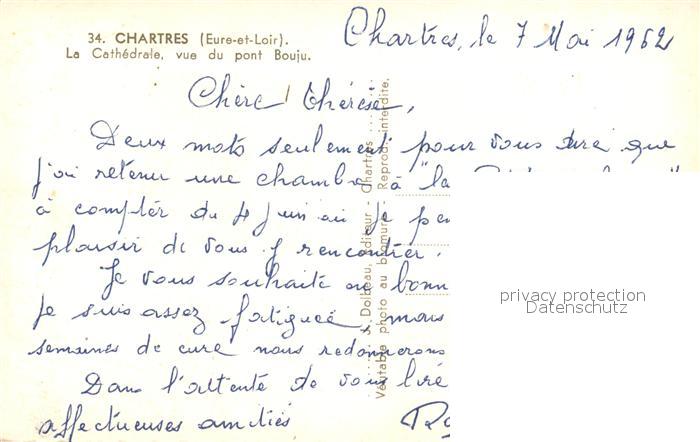 34. CHARTRES (Eure-et-Loir).
La Cathédrale, vue du pont Bouju.
Chartres, le 7 Mai 1962
Chère Thérèse,
Deux mots seulement pour vous dire que
j'ai retenu une chambre à "la
à compter du 4 Juin où je pe
plaisir de vous y rencontrer.
Je vous souhaite une bonn
Je suis assez fatiguée, mais
semaines de cure nous redonnerons
Dans l'attente de vous lire
affectueuses amitiés
J. Dolbeau, éditeur - Chartres
Véritable photo au bromure - Reprod. interdite.
privacy protection
Datenschutz